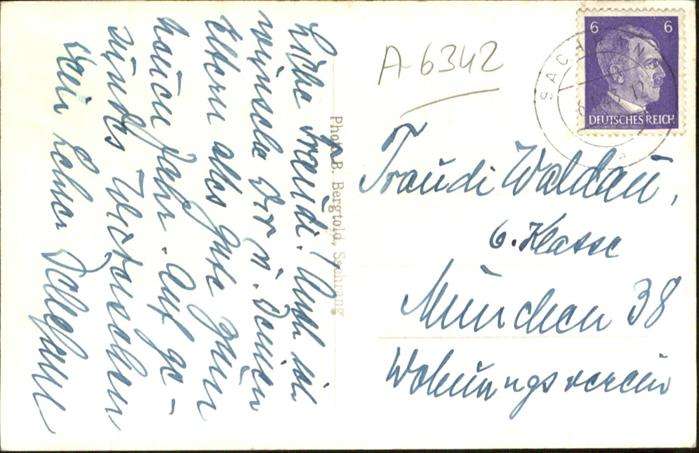 Liebe Traudi! Auch ich
wünsche Dir u. Deinen
Eltern alles Gute zum
neuen Jahr. Auf ge-
sundes Wiedersehen
Dein Lehrer
Phot. B. Bergtold, Sachrang
A-6342
6 6
DEUTSCHES REICH
SACH
Traudi Waldau,
6. Klasse
München 38
Wohnungsverein